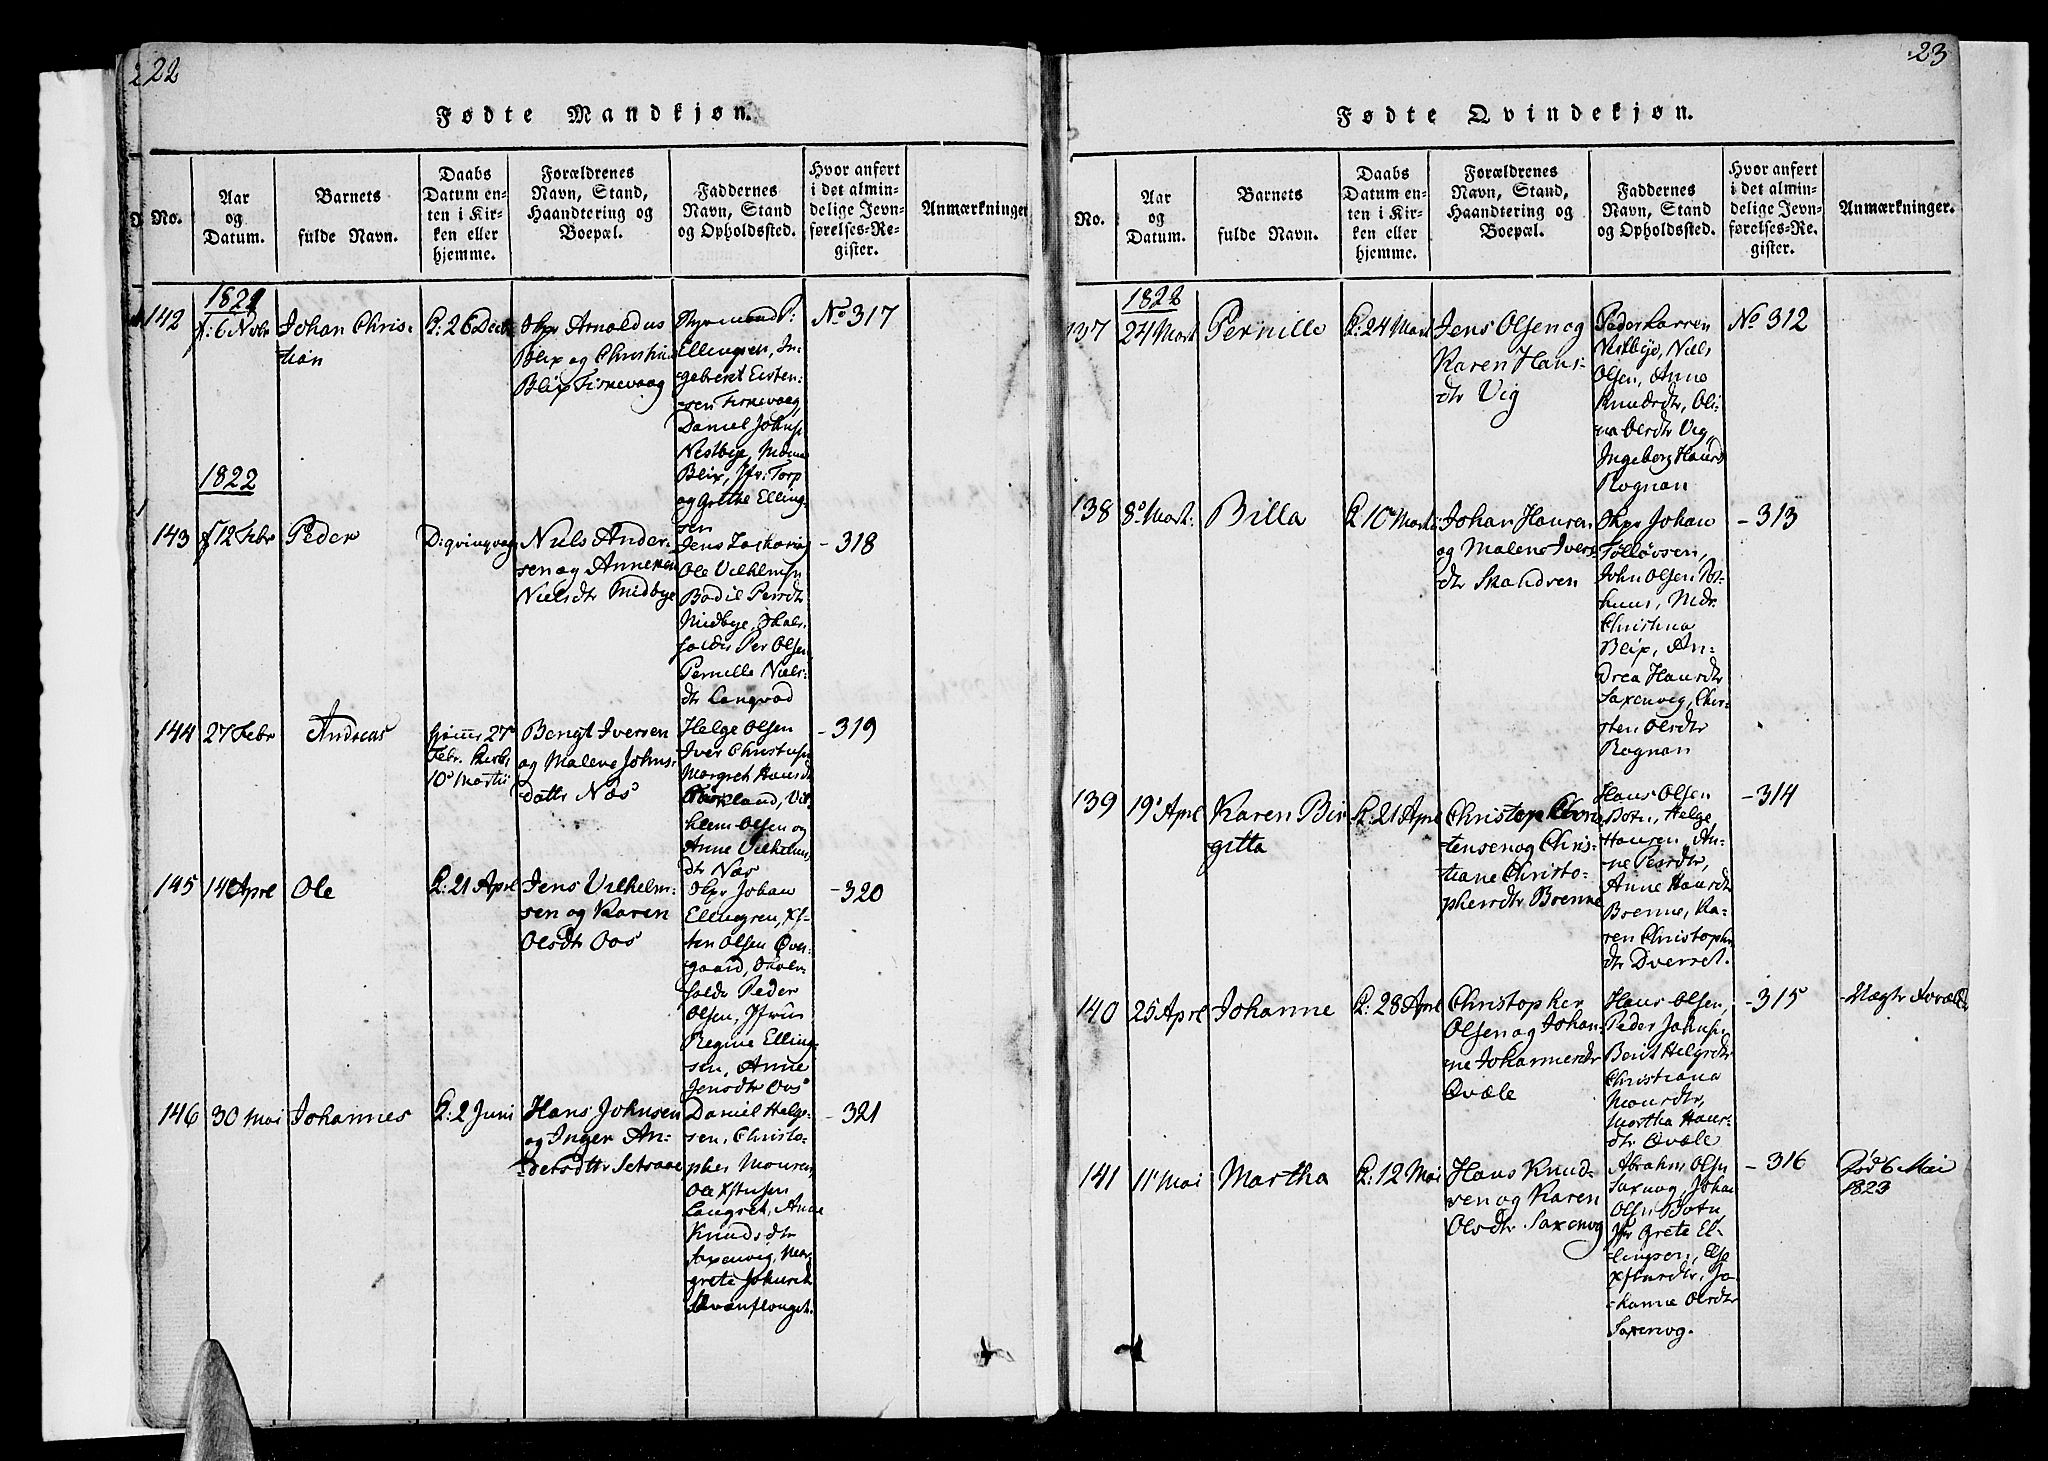 22
Fødte Mandkjøn.
No.
Aar
og
Datum.
Barnets
fulde Navn.
Daabs
Datum en-
ten i Kir-
ken eller
hjemme.
Forældrenes
Navn, Stand,
Haandtering og
Boepæl.
Faddernes
Navn, Stand
og Opholdssted.
Hvor anført
i det almin-
delige Jevn-
førelses-Re-
gister.
Anmærkninger
142
1821
f: 6 Novbr
Johan Chris-
tian
K: 26 Decbr
Skpr Arnoldus
Blix og Christina
Blix Fiskevaag
Ellingsen, In-
gebreckt Eisten-
sen Fiskevaag,
Daniel Johns:
Nestbye, Mdme
Blix, Jfr: Torp
og Grethe Elling-
sen
No 317
1822
143
f 12 Febr
Peder
D: qvinqvag
Niels Ander-
sen og Anne
Nielsdtr Midbye
Jens Zacharias
Ole Vilhelmsn
Bodil Persdtr
Midbye, Skole-
holder Per Olsen
Pernille Niels-
dtr Langvad
- 318
144
27 Febr
Andreas
hjemme 27
Febr.
10 Martii
Bengt Iversen
og Malene Johns-
dattr Næs
Helge Olsen
Iver Christensn
Margret Hansdtr
Storkland, Vil-
helm Olsen og
Anne Vilhelms
dtr Næs
- 319
145
14 Aprl
Ole
K: 21 Aprl
Jens Vilhelm-
sen og Karen
Olsdtr Oos
Skpr Johan
Ellingsen, Xs-
ten Olsen Over-
gaard, Skole-
holder Peder
Olsen, Jfrue
Regine Elling-
sen, Anne
Jensdtr Oos
- 320
146
30 Mai
Johannes
K: 2 Juni
Hans Johnsen
og Inger An-
dersdttr Setsaae
Daniel Helge-
sen, Christo-
pher Monsen
Ole Xstensen
Langset, Anne
Knudsdtr
Saxenvig, Mar-
grete Johnsdtr
Evensflonget.
- 321
23
Fødte Qvindekjøn.
No.
Aar
og
Datum.
Barnets
fulde Navn.
Daabs
Datum en-
ten i Kir-
ken eller
hjemme.
Forældrenes
Navn, Stand,
Haandtering og
Boepæl.
Faddernes
Navn, Stand
og Opholdssted.
Hvor anført
i det almin-
delige Jevn-
førelses-Re-
gister.
Anmærkninger.
137
1822
24 Mart
Pernille
K: 24 Mart
Jens Olsen og
Karen Hans-
dtr Vig
Peder Larsen
Nestbye, Niels
Olsen, Anne
Knudsdtr, Oli-
na Olsdtr Vig,
Ingeborg Hansd
Rognan
No 312
138
8 Mart:
Billa
K 10 Martii
Johan Hansen
og Malene Ivers
dtr Skandsen
Skpr Johan
Tolløvsen,
John Olsen Pot-
huus, Mdr.
Christina
Blix, An-
drea Hansdtr
Saxenvig, Chir-
sten Olsdtr
Rognan
- 313
139
19 Aprl
Karen Bir
gitta
K: 21 Aprl
Christen Chris
tensen og Chris-
tiane Christo-
phersdtr Brenne
Hans Olsen
Botn, Helge
Hansen, An-
ne Persdtr,
Anne Hansdtr
Brenne, Ka-
ren Christophr
dtr Dverset.
- 314
140
25 Aprl
Johanne
K: 28 Aprl
Christopher
Olsen og Johan-
ne Johannesdtr
Qvæle
Hans Olsen,
Peder Johnsn
Berit Helgesdtr
Christiana
Monsdtr,
Martha Hans-
dtr Qvæle
- 315
141
11 Mai
Martha
K: 12 Mai
Hans Knud-
sen og Karen
Olsdtr Saxenvg
Abrahm Olsn
Saxnvg, Johan
Olsn Botn,
Jfr Grete El-
lingsen, Else
Xstensdtr, Jo-
hanne Olsdtr
Saxenvg.
- 316
Død 6 Mai
1823